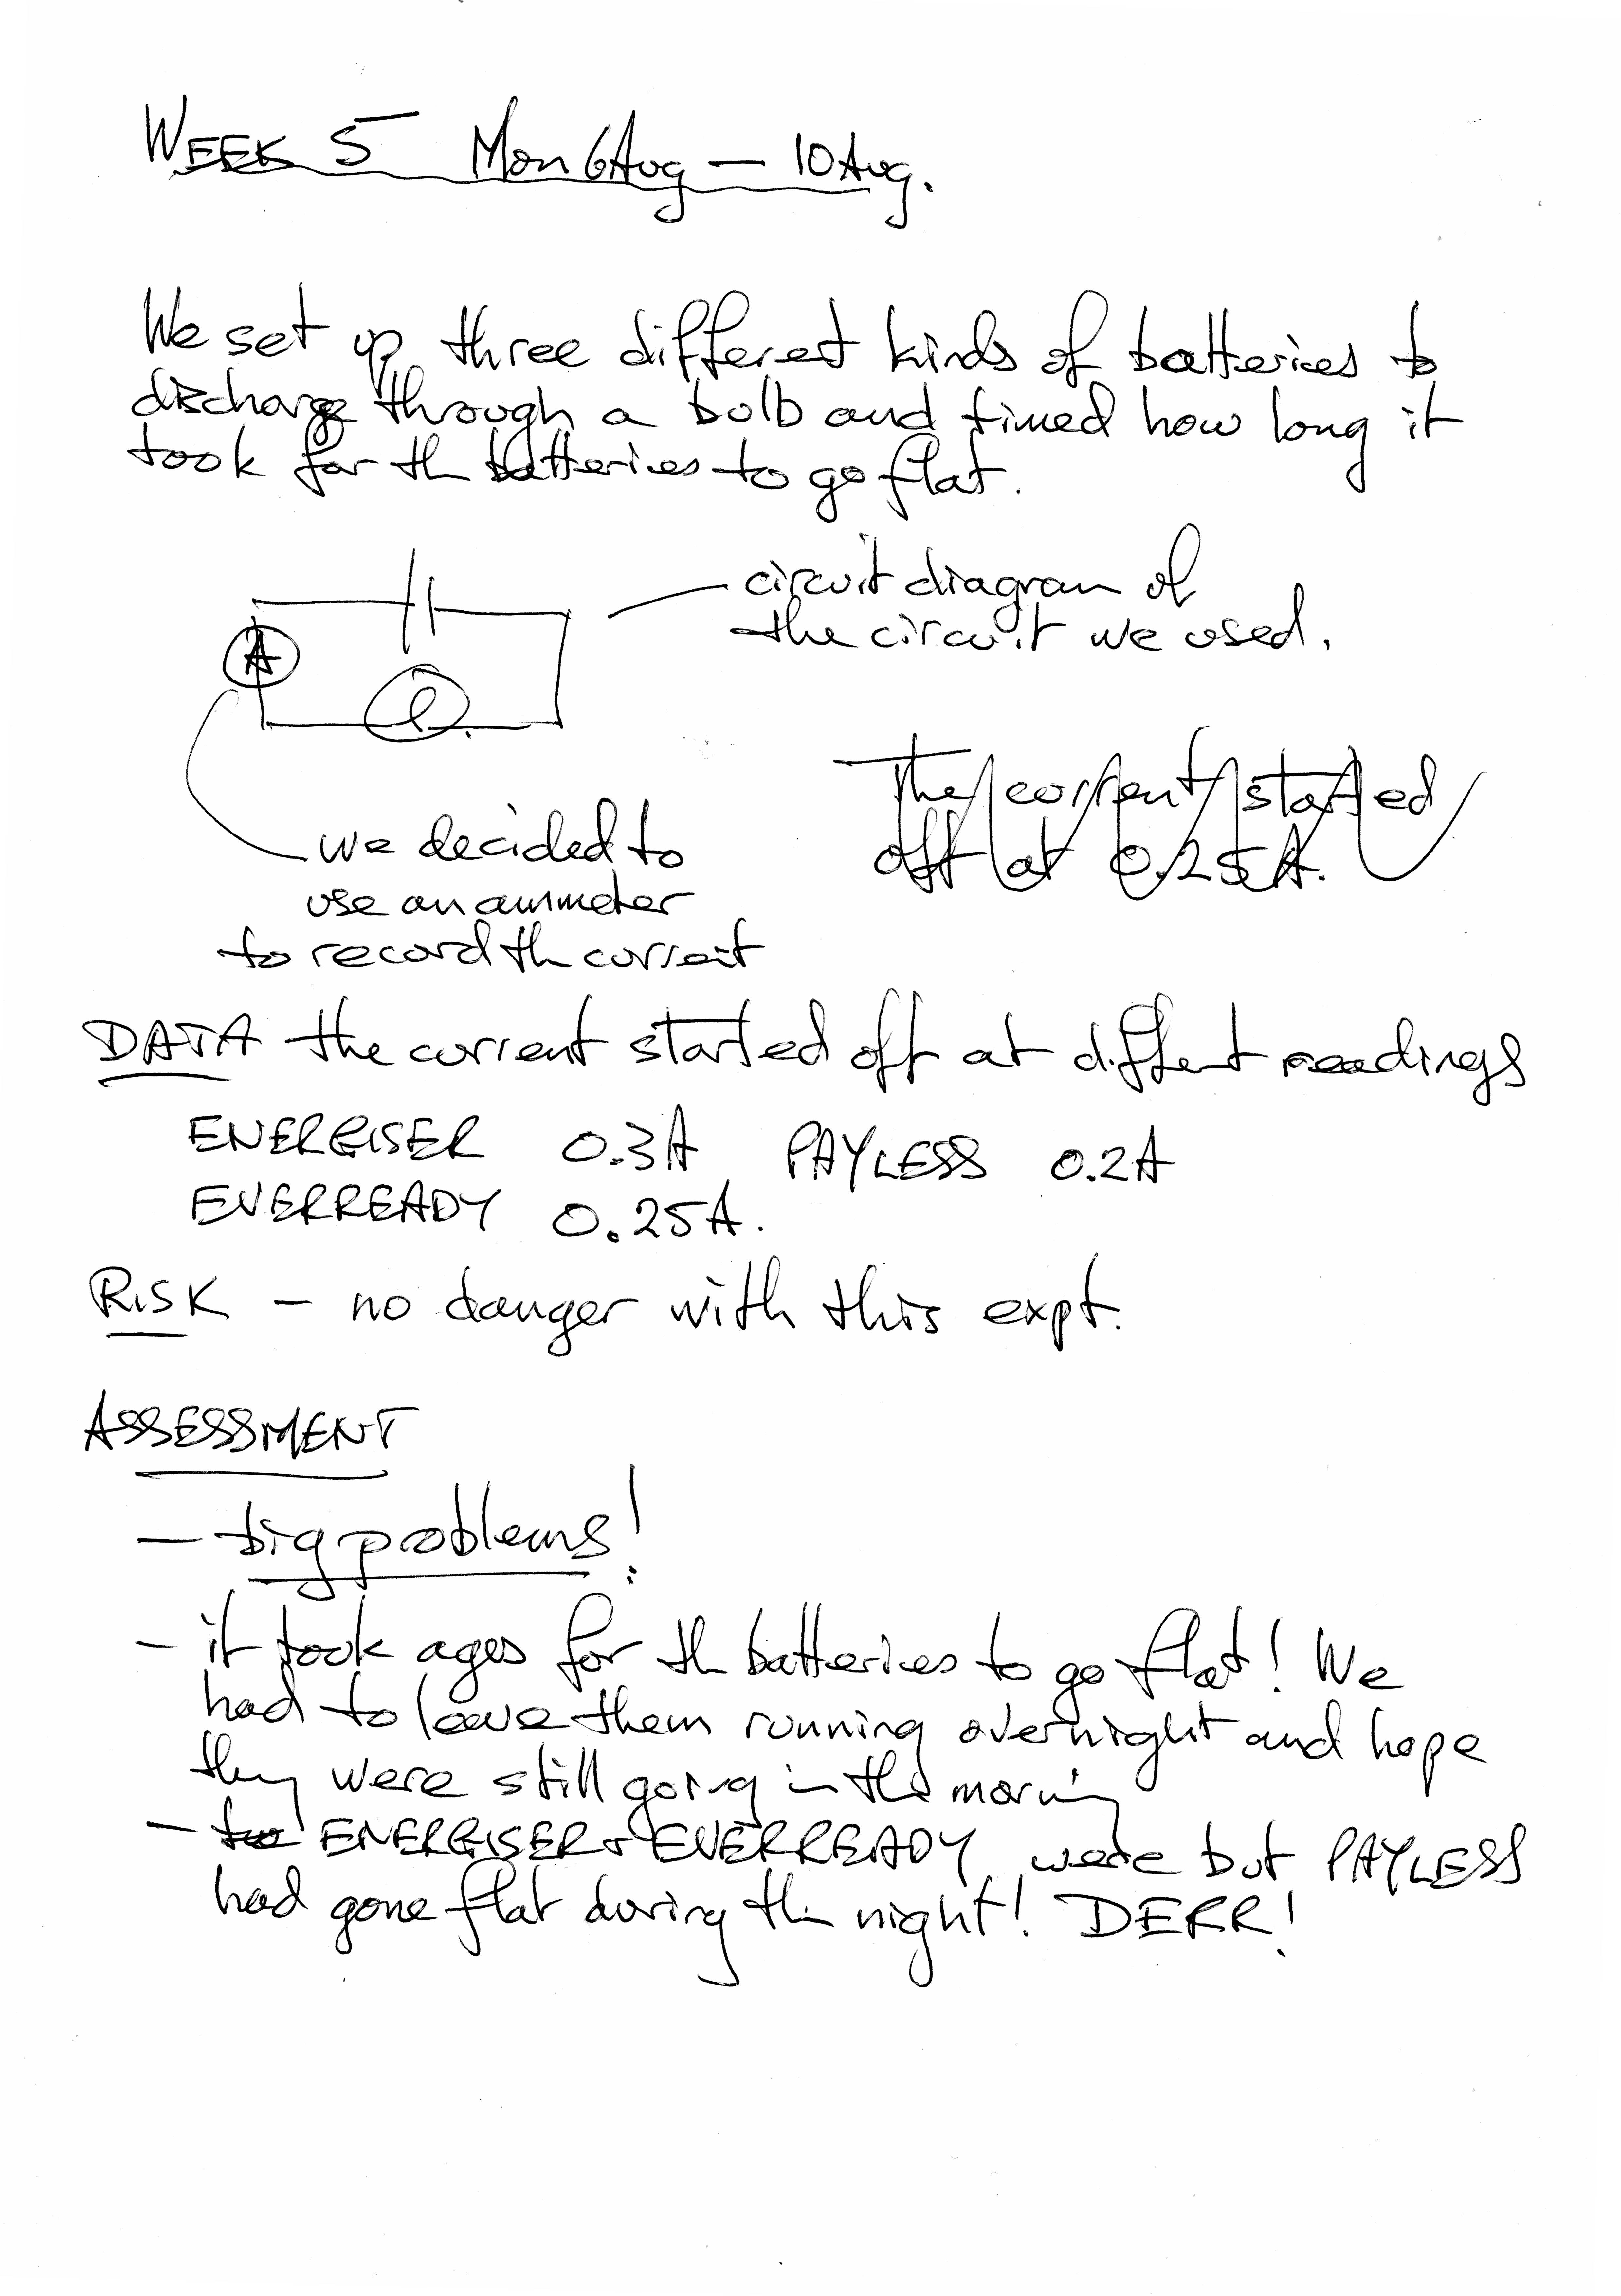 WEEK 5 Mon 6 Aug — 10 Aug.
We set up three different kinds of batteries to
discharge through a bulb and timed how long it
took for th batteries to go flat.
circuit diagram of
the circuit we used.
A
The current started
off at 0.25A.
we decided to
use an ammeter
to record th current
DATA the current started off at diffent readings
ENERGISER 0.3A PAYLESS 0.2A
EVERREADY 0.25A.
RISK - no danger with this expt.
ASSESSMENT
- big problems!
- it took ages for th batteries to go flat! We
had to leave them running overnight and hope
they were still going in the morning
- two ENERGISER + EVERREADY were but PAYLESS
had gone flat during th night! DERR!